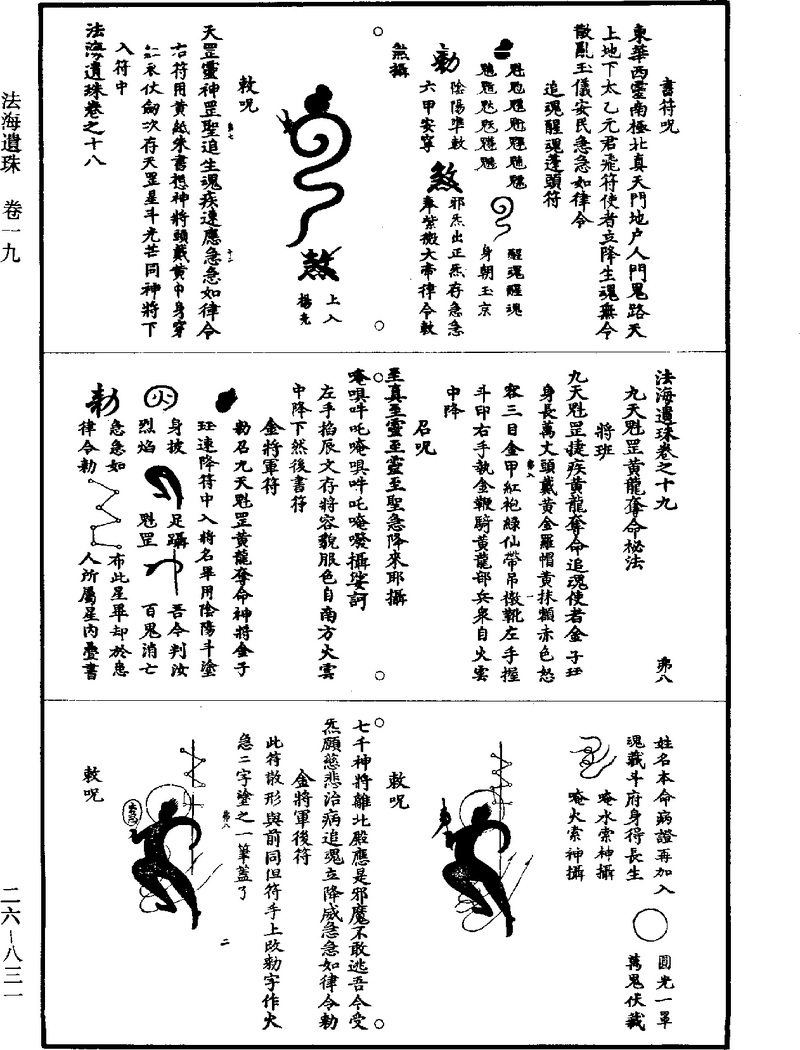 法海遺珠　卷一九
二六－八三一
書符呪
東華西靈南極北真天門地户人門鬼路天
上地下太乙元君飛符使者立降生魂無令
散亂玉儀安民急急如律令
追魂醒魂蓬頭符
醒魂醒魂
身朝玉京
勑
陰陽準敕
六甲安寧
煞
邪炁出正炁存急急
奉紫微大帝律令敕
煞攝
煞
上入
楊光
敕呪
天罡靈神罡聖追生魂疾速應急急如律令
右符用黄紙朱書想神將頭戴黄巾身穿
紅衣仗劍次存天罡星斗光芒同神將下
入符中
法海遺珠卷之十八
法海遺珠卷之十九
弗八
九天魁罡黄龍奪命祕法
將班
九天魁罡捷疾黄龍奪命追魂使者金子玨
身長萬丈頭戴黄金羅帽黄抹額赤色怒
容三目金甲紅袍緑仙帶吊橔靴左手握
斗印右手執金鞭騎黄龍部兵衆自火雲
中降
召呪
至真至靈至靈至聖急降來耶攝
唵嗔吽吒唵嗔吽吒唵囖攝娑訶
左手掐辰文存將容貌服色自南方火雲
中降下然後書符
金將軍符
勑召九天魁罡黄龍奪命神將金子
玨速降符中入將名畢用陰陽斗塗
身披
烈焰
火
足躡
魁罡
吾今判汝
百鬼消亡
勑
急急如
律令勑
布此星畢却於患
人所屬星内疊書
姓名本命病證再加入
魂藏斗府身得長生
圓光一罩
萬鬼伏藏
唵水索神攝
唵火索神攝
敕呪
七千神將離北殿應是邪魔不敢逃吾今受
炁願慈悲治病追魂立降威急急如律令勑
金將軍後符
此符散形與前同但符手上改勑字作火
急二字塗之一筆蓋了
弗八
二
敕呪